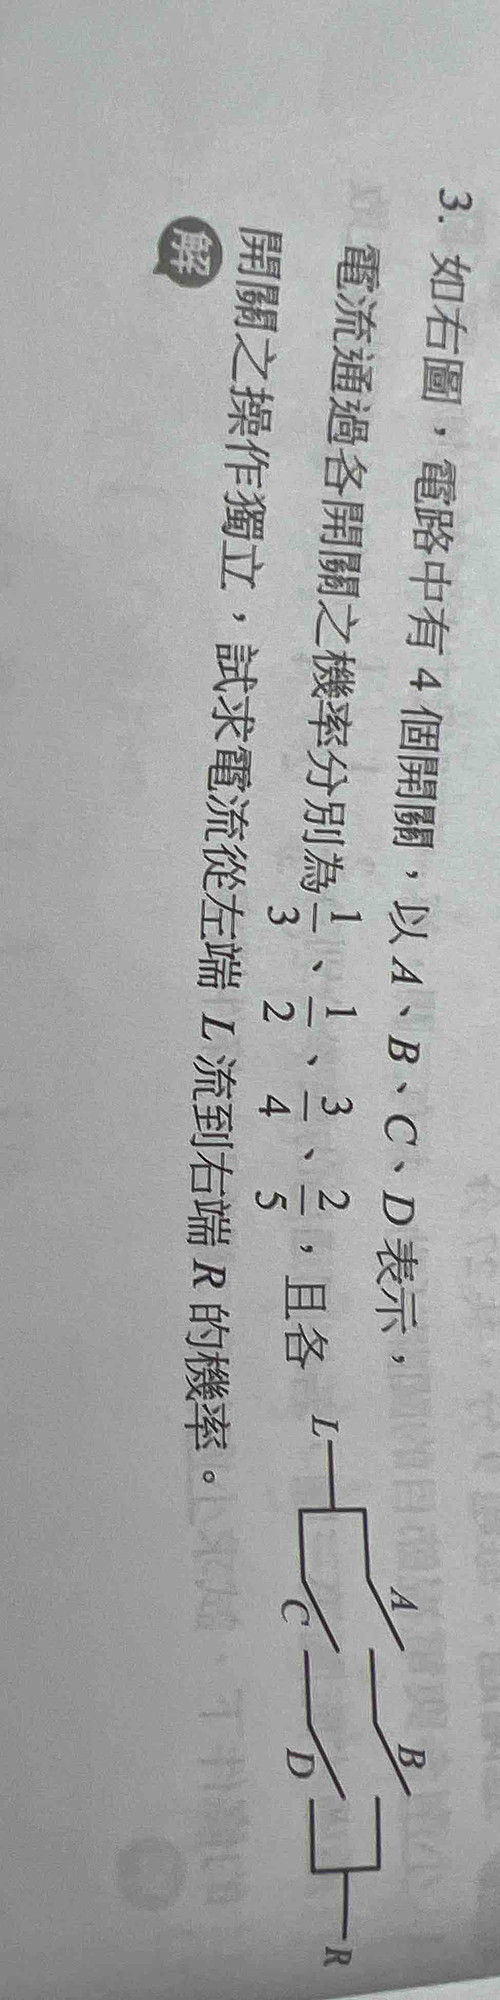 3. 如右圖，電路中有 4 個開關，以 A、B、C、D 表示，
電流通過各開關之機率分別為 1/3、1/2、3/4、2/5，且各
開關之操作獨立，試求電流從左端 L 流到右端 R 的機率。
解
L
A
B
C
D
R